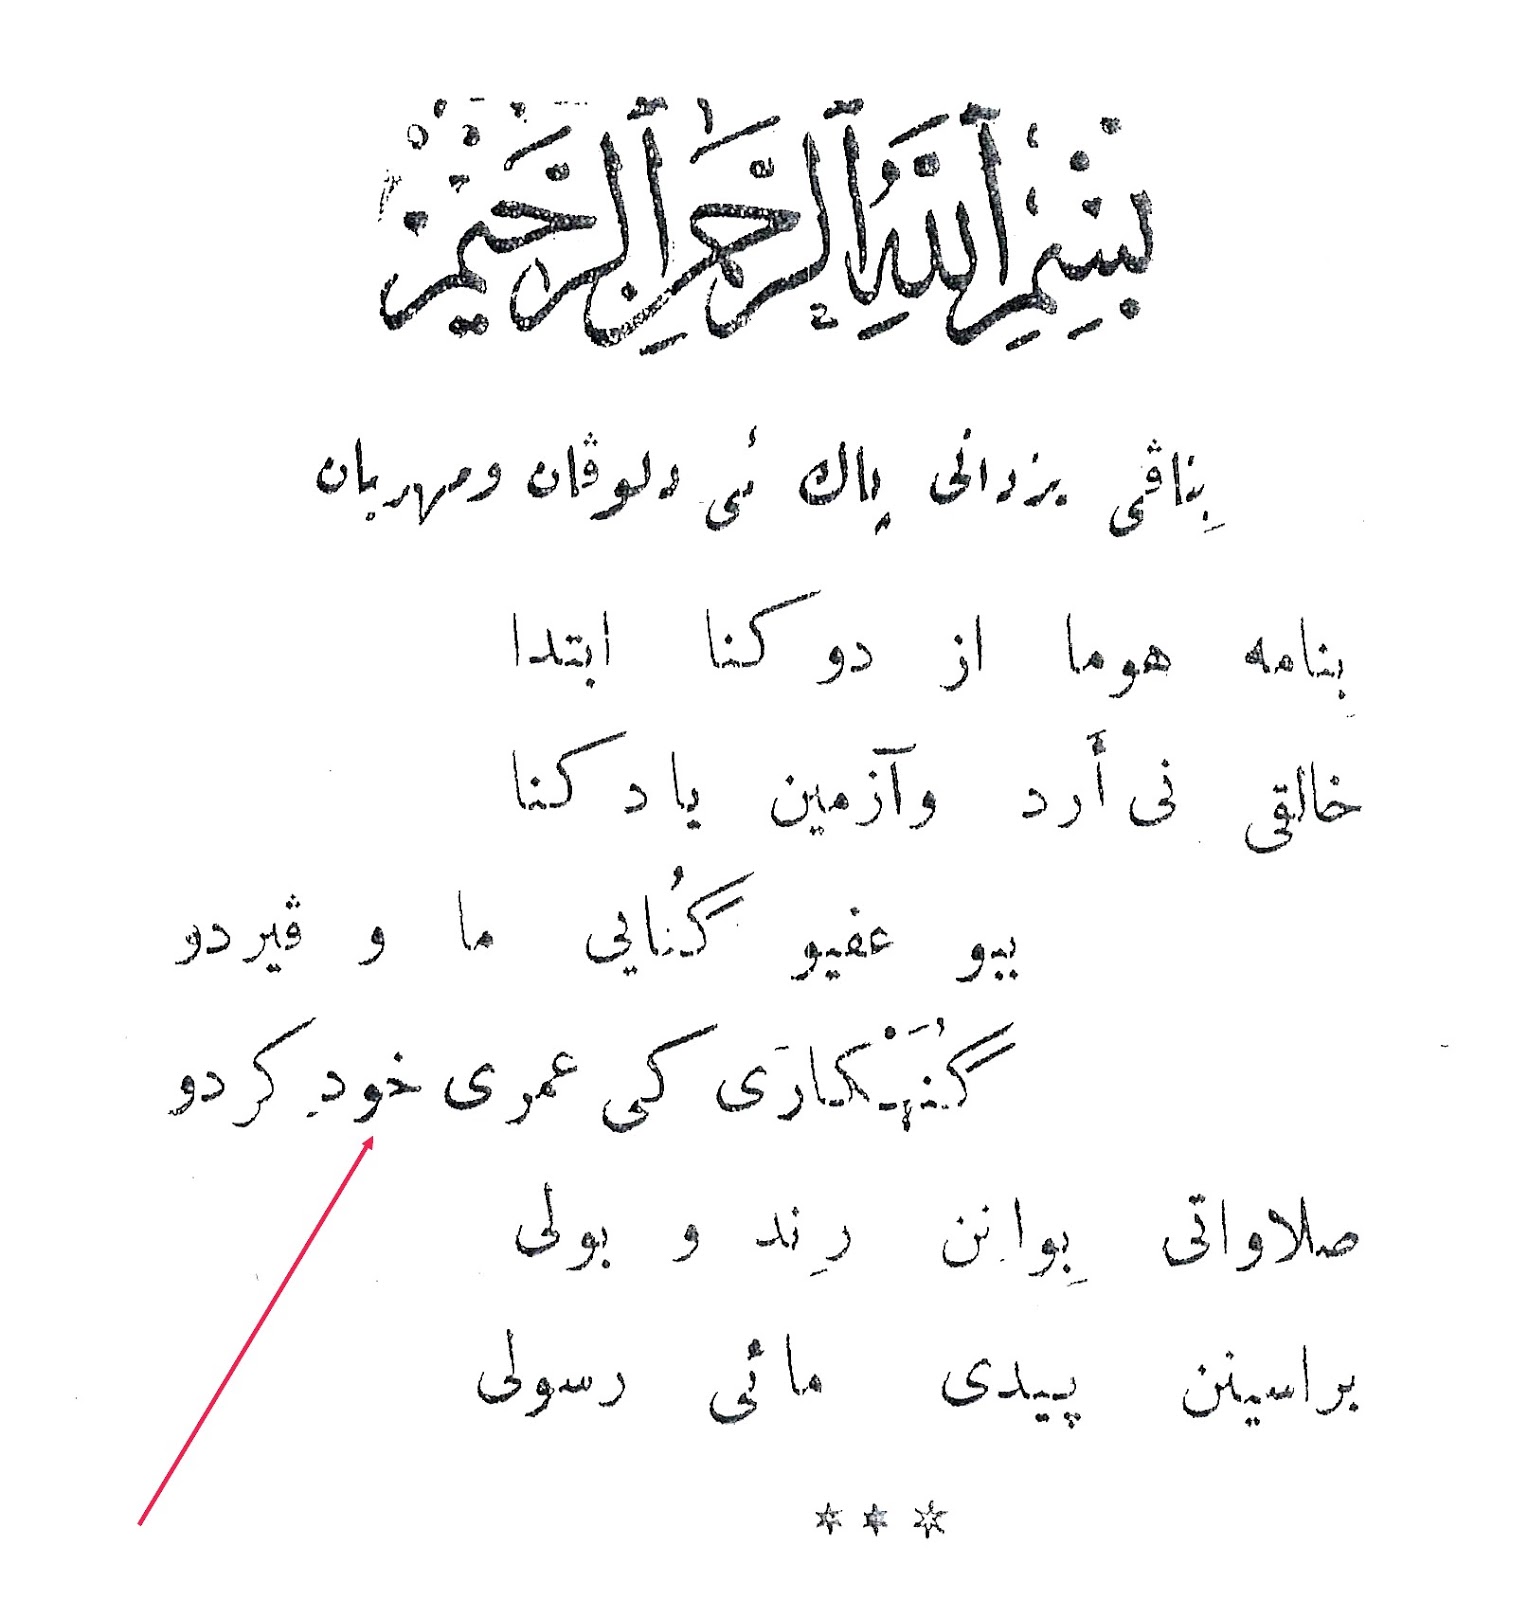 بِسْمِ ٱللَّهِ ٱلرَّحْمَٰنِ ٱلرَّحِيمِ
بِناڤی یزدانی پاك ئی دلوڤان ومهربان
بِنامه هوما از دو کنا ابتدا
خالقی نی أَرد وآزمین یاد کنا
ببو عفیو گُنایی ما و ڤیردو
گُنَهْکارَی کی عمری خودِ کردو
صلاواتی بِوانِن رِند و بولی
براسینن پیدی مائی رسولی
***